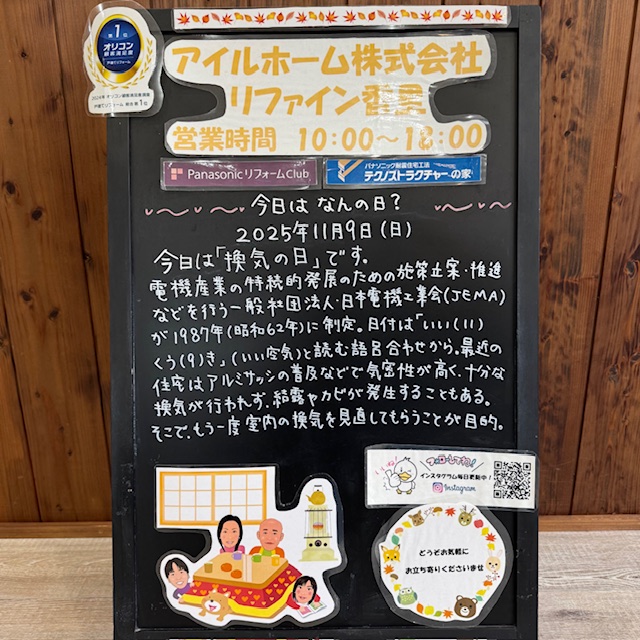 第1位
オリコン
顧客満足度
戸建てリフォーム
2024年 オリコン顧客満足度調査
戸建てリフォーム 総合 第1位
アイルホーム株式会社
リファイン
営業時間 10:00～18:00
Panasonic リフォームClub
パナソニック耐震住宅工法
テクノストラクチャーの家
今日は なんの日？
2025年11月9日(日)
今日は「換気の日」です。
電機産業の持続的発展のための施策立案・推進
などを行う一般社団法人・日本電機工業会(JEMA)
が1987年(昭和62年)に制定。日付は「いい(11)
くう(9)き」(いい空気)と読む語呂合わせから。最近の
住宅はアルミサッシの普及などで気密性が高く、十分な
換気が行われず、結露やカビが発生することもある。
そこで、もう一度室内の換気を見直してもらうことが目的。
いいね!
フォローしてね!
インスタグラム毎日更新中!
Instagram
どうぞお気軽に
お立ち寄りくださいませ